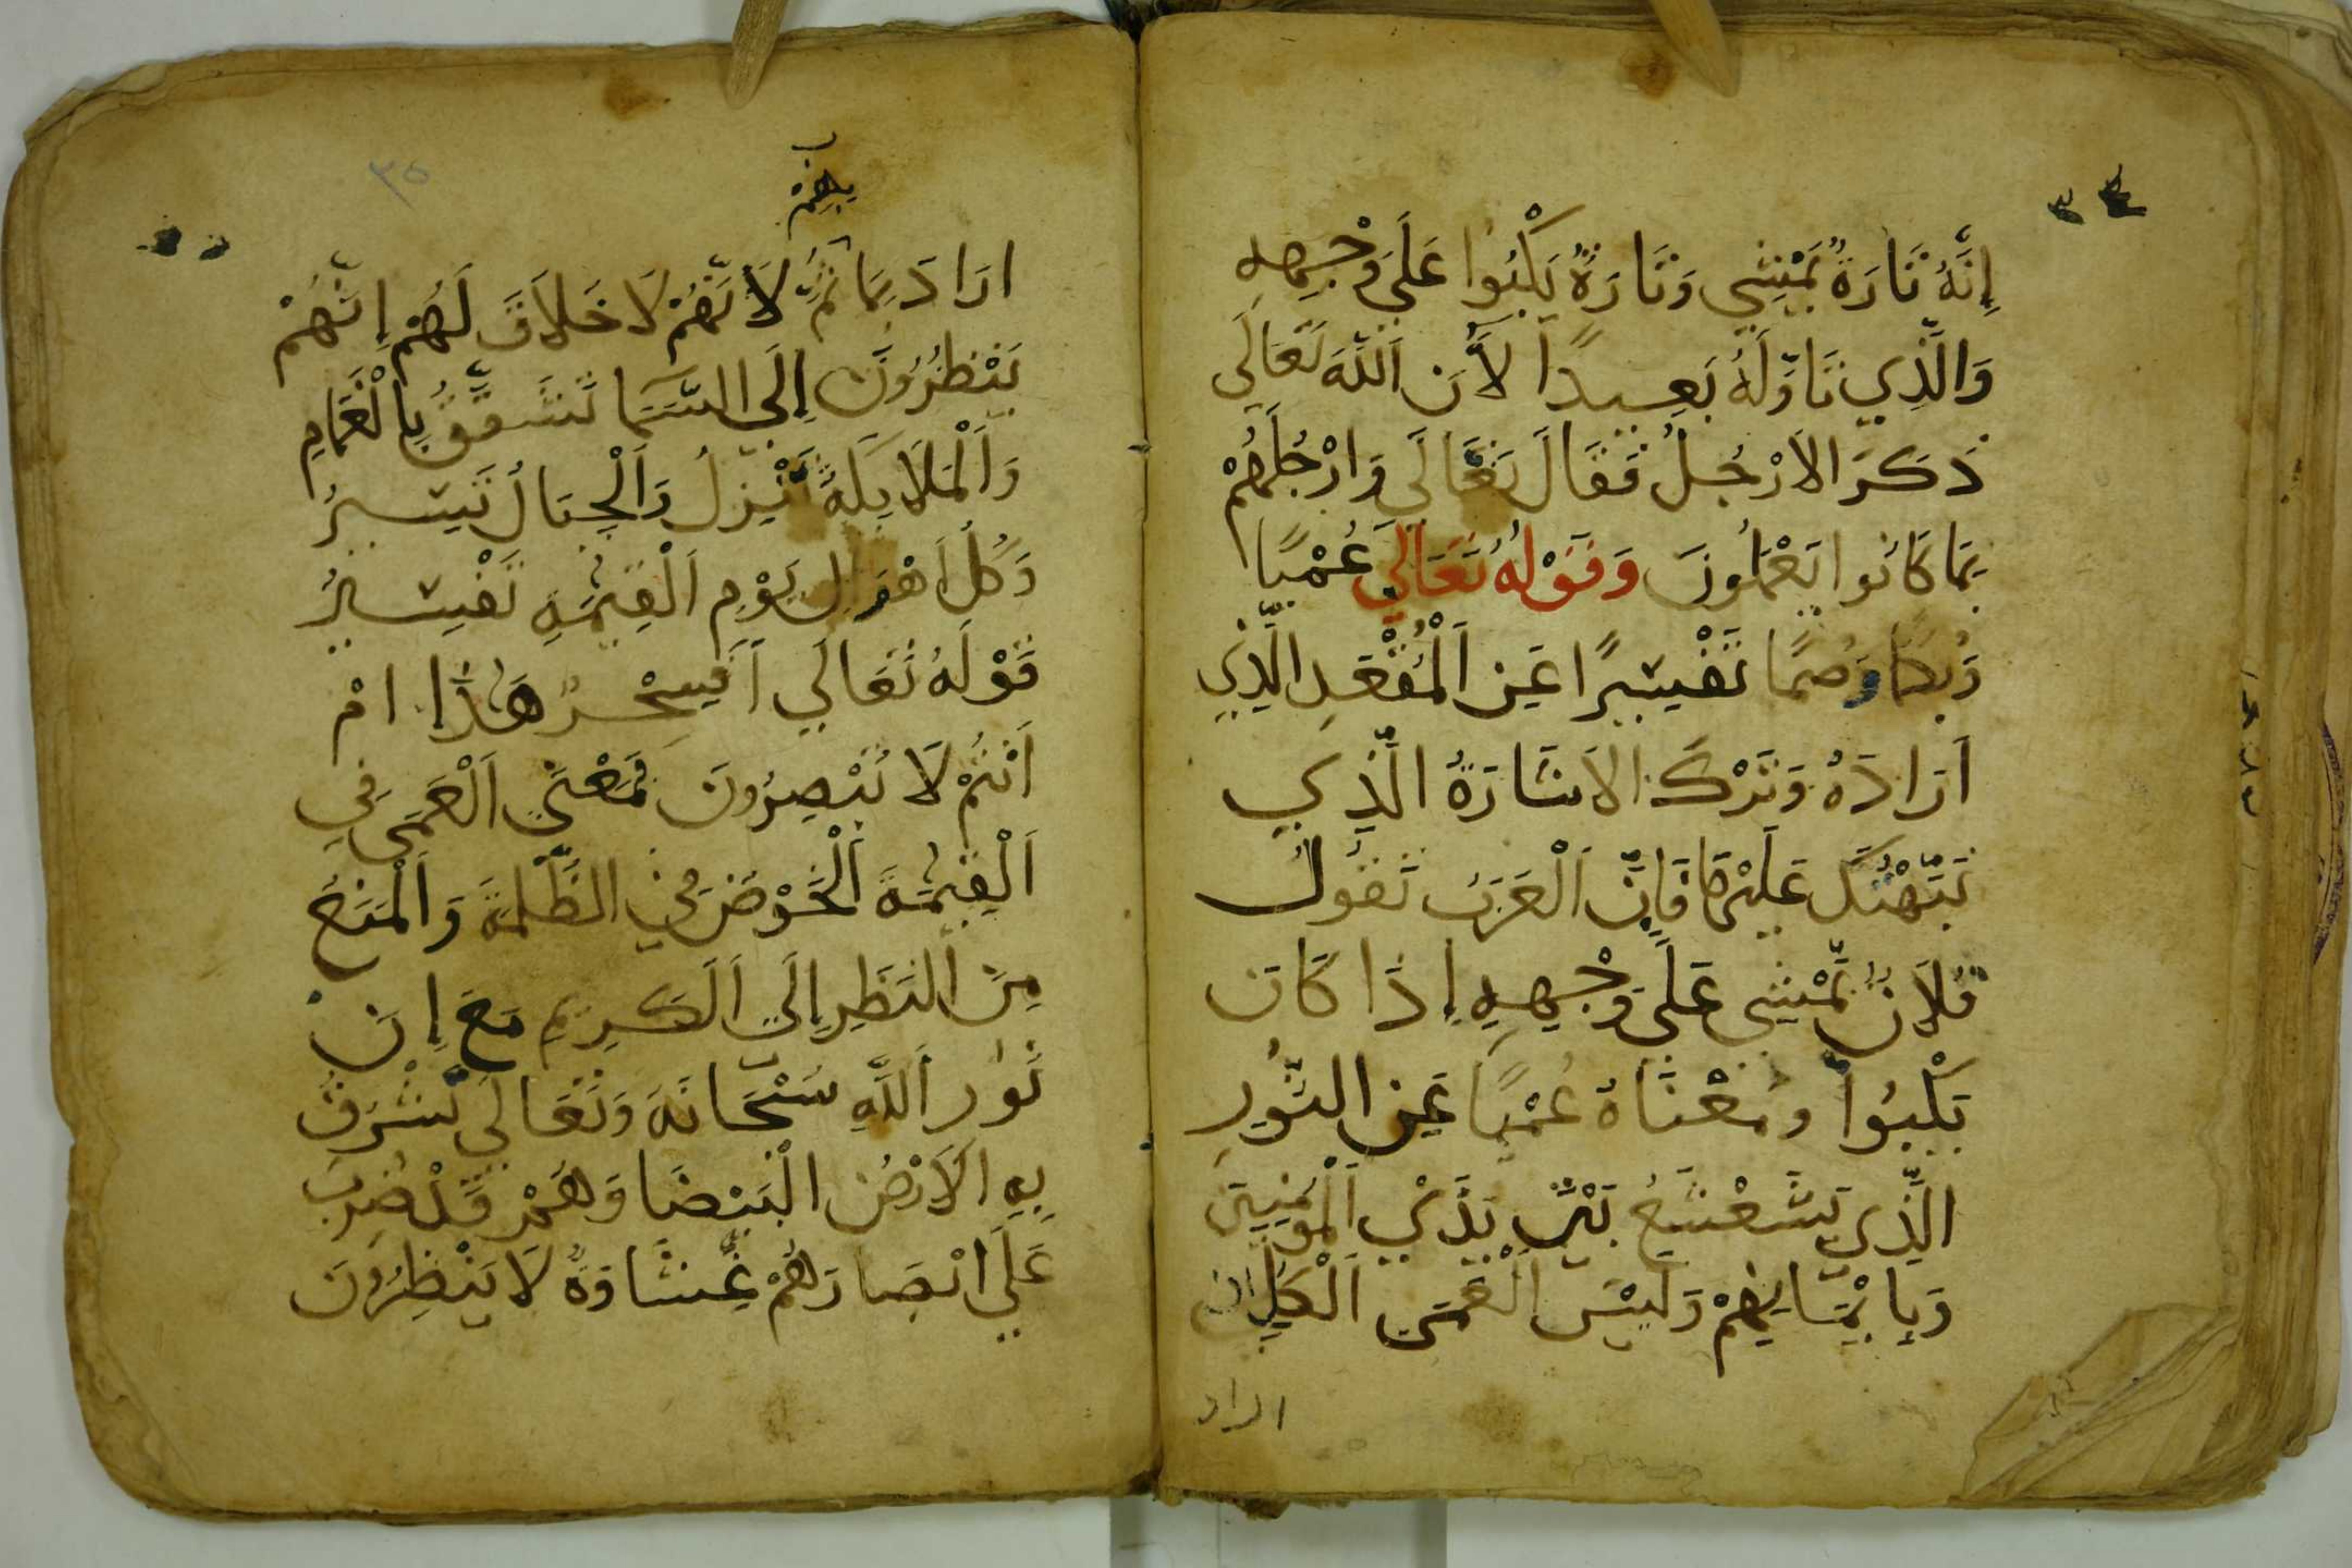 إِنَّهُ تَارَةً يَمْشِي وَتَارَةً يَكْبُوا عَلَى وَجْهِهِ
وَالَّذِي تَاوَّلَهُ بَعِيدًا لأَن اللَّهَ تَعَالَى
ذَكَرَ الاَرْجُلُ فَقَالَ تَعَالَى وَارْجُلُهُمْ
بِمَا كَانُوا يَعْمَلُونَ وَقَوْلُهُ تَعَالَى عُمْيًا
وَبُكمًا وَصُمًّا تَفْسِيرًا عَنِ الْمُقْعَدِ الَّذِي
اَرَادَهُ وَتَرْكَ الاشَارَةُ الَّذِي
عَلَيْهَا فَاِنَّ الْعَرَبَ تَقُولُ
فُلَانٌ يَمْشِي عَلَى وَجْهِهِ إِذَا كَانَ
يَكْبُوا وَمَعْنَاهُ عُمْيًا عَنِ النُّورِ
الَّذِي يَشَعْشَعُ بَيْنَ يَدَيْ الْمُؤمِنِينَ
وَبِايْمَانِهِمْ وَلَيْسَ الْعَمَى الْكُلِّي اذ
اراد
٣٤
٣٥
بهم
ارَادَ بِمَا ثَمَّ لاَنَّهُمْ لَا خَلَاقَ لَهُمْ إِنَّهُمْ
يَنْظُرُونَ إِلَى السَّمَا تَشَقَّقُ بِالْغَمَامِ
وَالْمَلَايِكَةُ تَنْزِلُ وَالْجِبَالُ تَسِيرُ
وَكُلُ اَهْوَالِ يَوْمِ الْقِيٰمَةِ تَفْسِيرُ
قَوْلَهُ تَعَالَى اَفَسِحْرٌ هَذَا امْ
اَنْتُمْ لَا تُبْصِرُونَ فَمَعْنَى الْعَمَى فِي
الْقِيٰمَةَ الْخَوْضَ فِي الظُّلمَةَ وَالْمَنَعُ
مِنَ النَظَرِ إِلَى الْكَرِيمِ مَعَ إِنَ
نُورَ اللَّهِ سُبْحَانَهَ وَتَعَالَى تُشْرَقُ
بِهِ الاَرْضُ الْبَيْضَا وَهُمْ قَدْ ضُرِبَ
عَلَى ابْصَارَهُمْ غِشَاوَةٌ لَا يَنْظِرُونَ